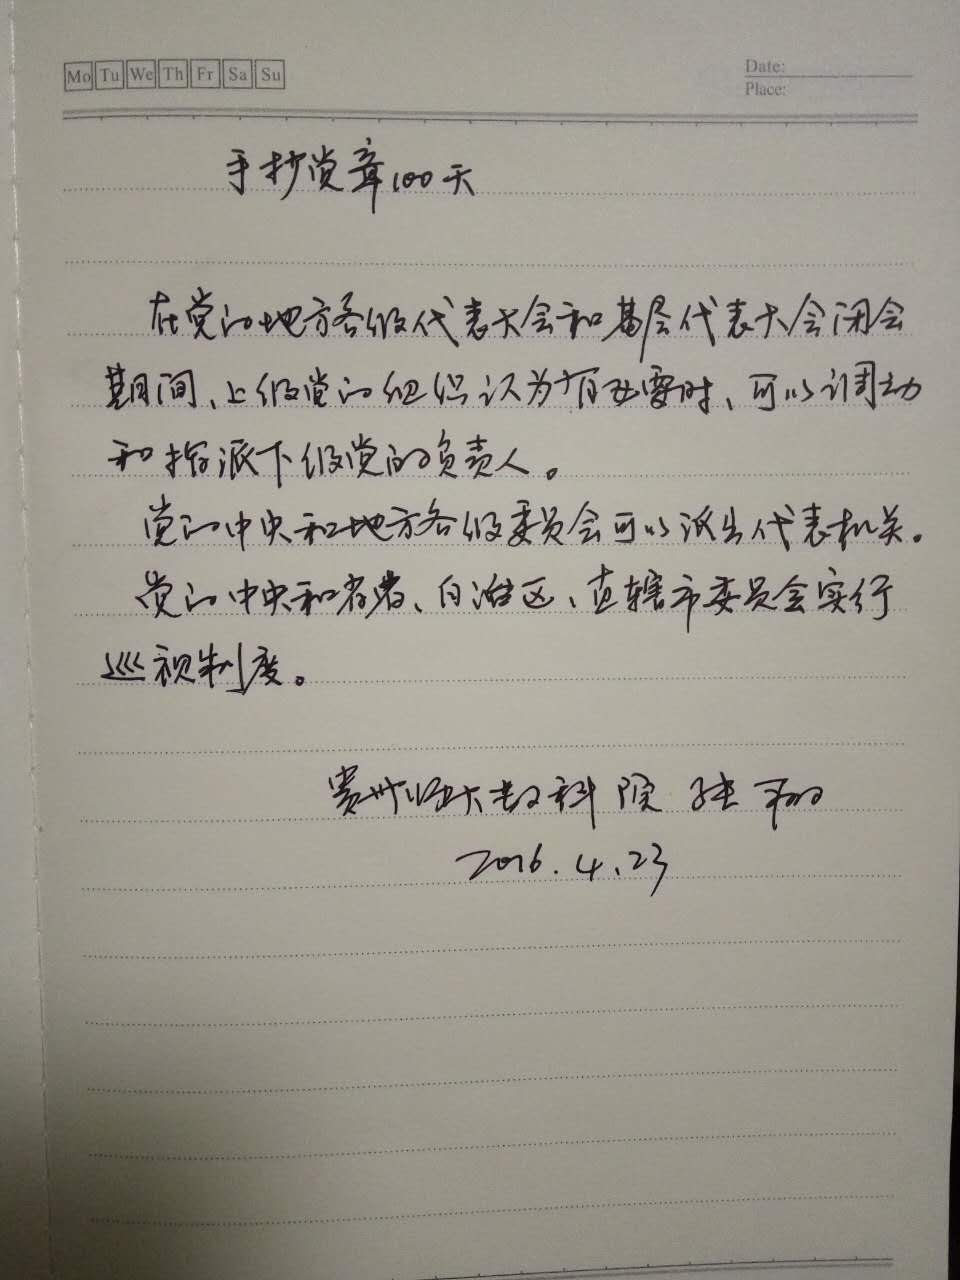 Mo Tu We Th Fr Sa Su
Date:
Place:
手抄党章100天
在党的地方各级代表大会和基层代表大会闭会
期间、上级党的组织认为有必要时、可以调动
和指派下级党的负责人。
党的中央和地方各级委员会可以派出代表机关。
党的中央和省、自治区、直辖市委员会实行
巡视制度。
贵州师大教科院 张
2016.4.23